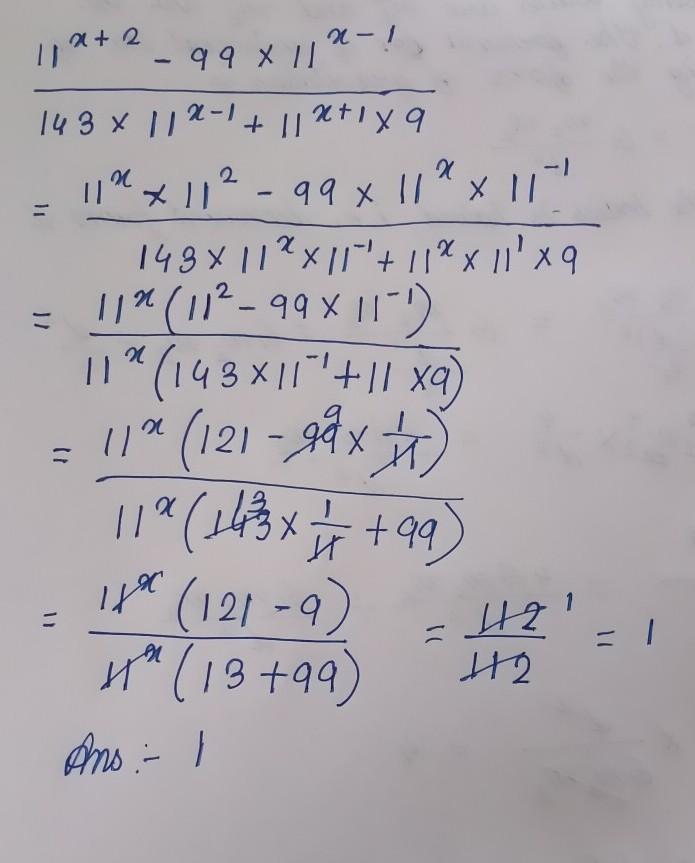 11^(x+2) - 99 × 11^(x-1)
143 × 11^(x-1) + 11^(x+1) × 9
= 11^x × 11^2 - 99 × 11^x × 11^-1
143 × 11^x × 11^-1 + 11^x × 11^1 × 9
= 11^x (11^2 - 99 × 11^-1)
11^x (143 × 11^-1 + 11 × 9)
= 11^x (121 - 99 9 × 1/11)
11^x (143 13 × 1/11 + 99)
= 11^x (121 - 9) = 112 1 = 1
11^x (13 + 99) 112
Ans :- 1